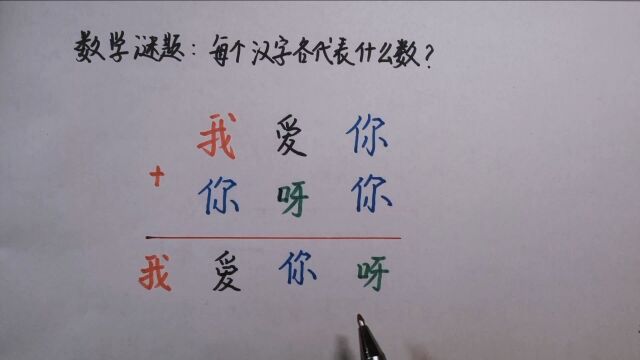 数学谜题：每个汉字各代表什么数？
我爱你
+ 你呀你
我爱你呀